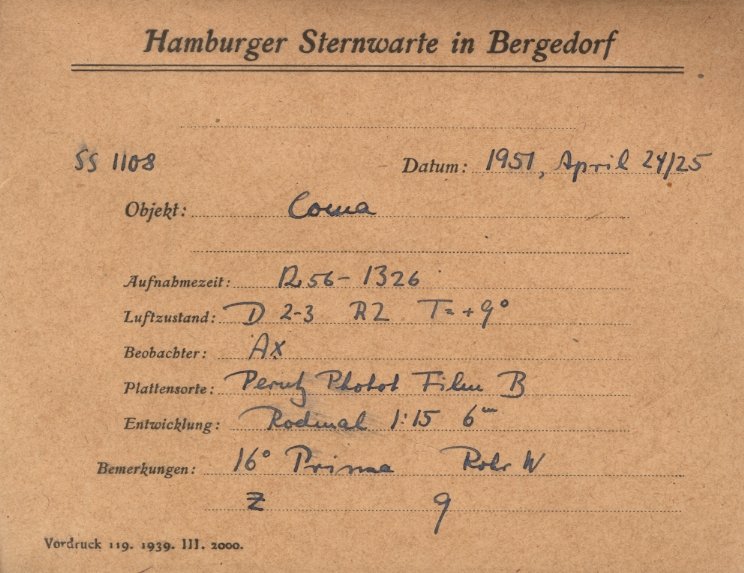 Hamburger Sternwarte in Bergedorf
SS 1108 Datum: 1951, April 24/25
Objekt: Coma
Aufnahmezeit: 1256 – 1326
Luftzustand: D 2-3 R2 T = +9°
Beobachter: Ax
Plattensorte: Perutz Photot Film B
Entwicklung: Rodinal 1:15 6ᵐ
Bemerkungen: 16° Prisma Rohr W
Z 9
Vordruck 119. 1939. III. 2000.